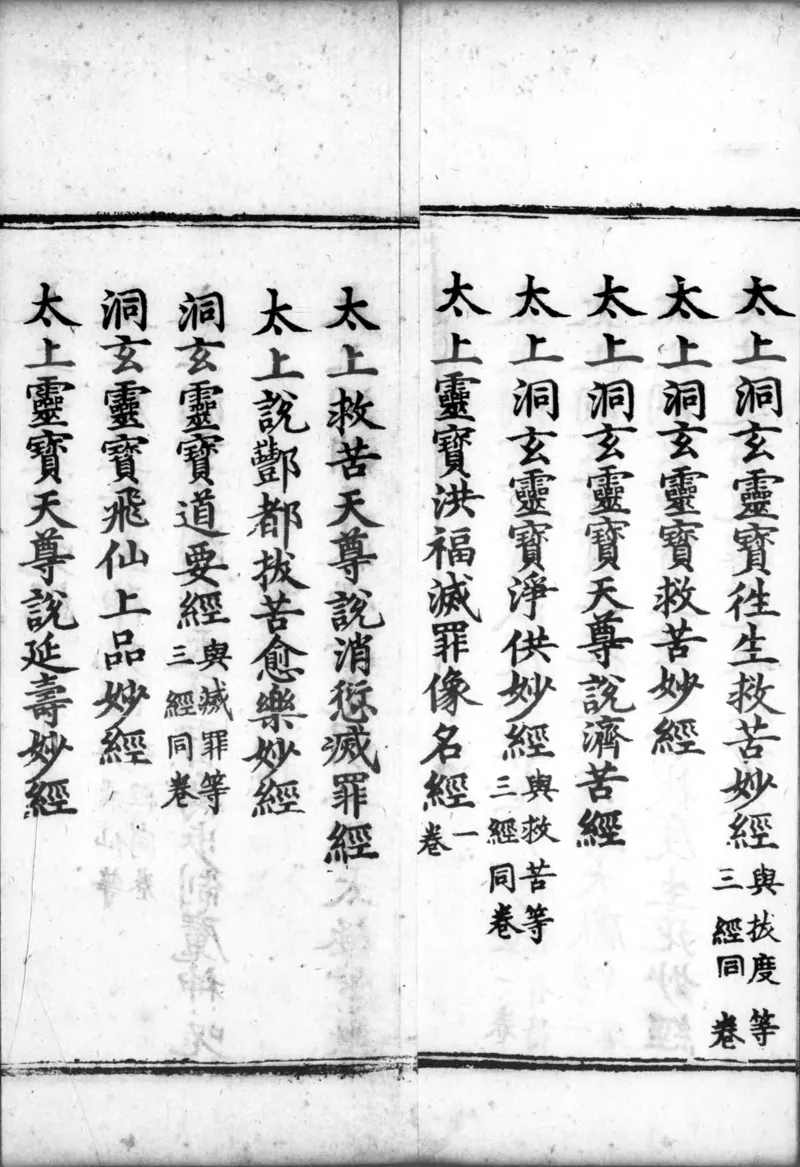 太上洞玄靈寶徃生救苦妙經與拔度等三經同卷
太上洞玄靈寶救苦妙經
太上洞玄靈寶天尊說濟苦經
太上洞玄靈寶淨供妙經與救苦等三經同卷
太上靈寶洪福滅罪像名經一卷
太上救苦天尊說消愆滅罪經
太上說酆都拔苦愈樂妙經
洞玄靈寶道要經與滅罪等三經同卷
洞玄靈寶飛仙上品妙經
太上靈寶天尊說延壽妙經